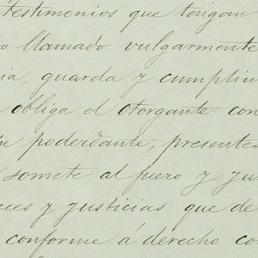 Testimonios que tengan
o llamado vulgarmente
ia, guarda y cumplim
obliga el otorgante con
poderdante, presente
somete al fuero y ju
ues y justicias que de
conforme á derecho co